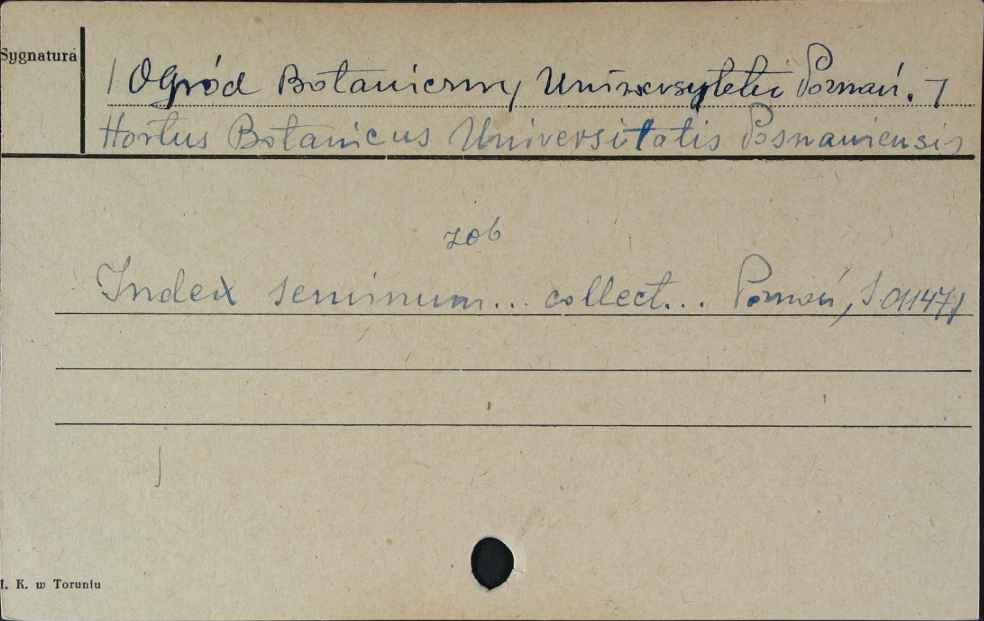 Sygnatura
[Ogród Botaniczny Uniwersytetu Poznań.]
Hortus Botanicus Universitatis Posnaniensis
zob
Index seminum... collect... Poznań, S 011471
I. K. w Toruniu